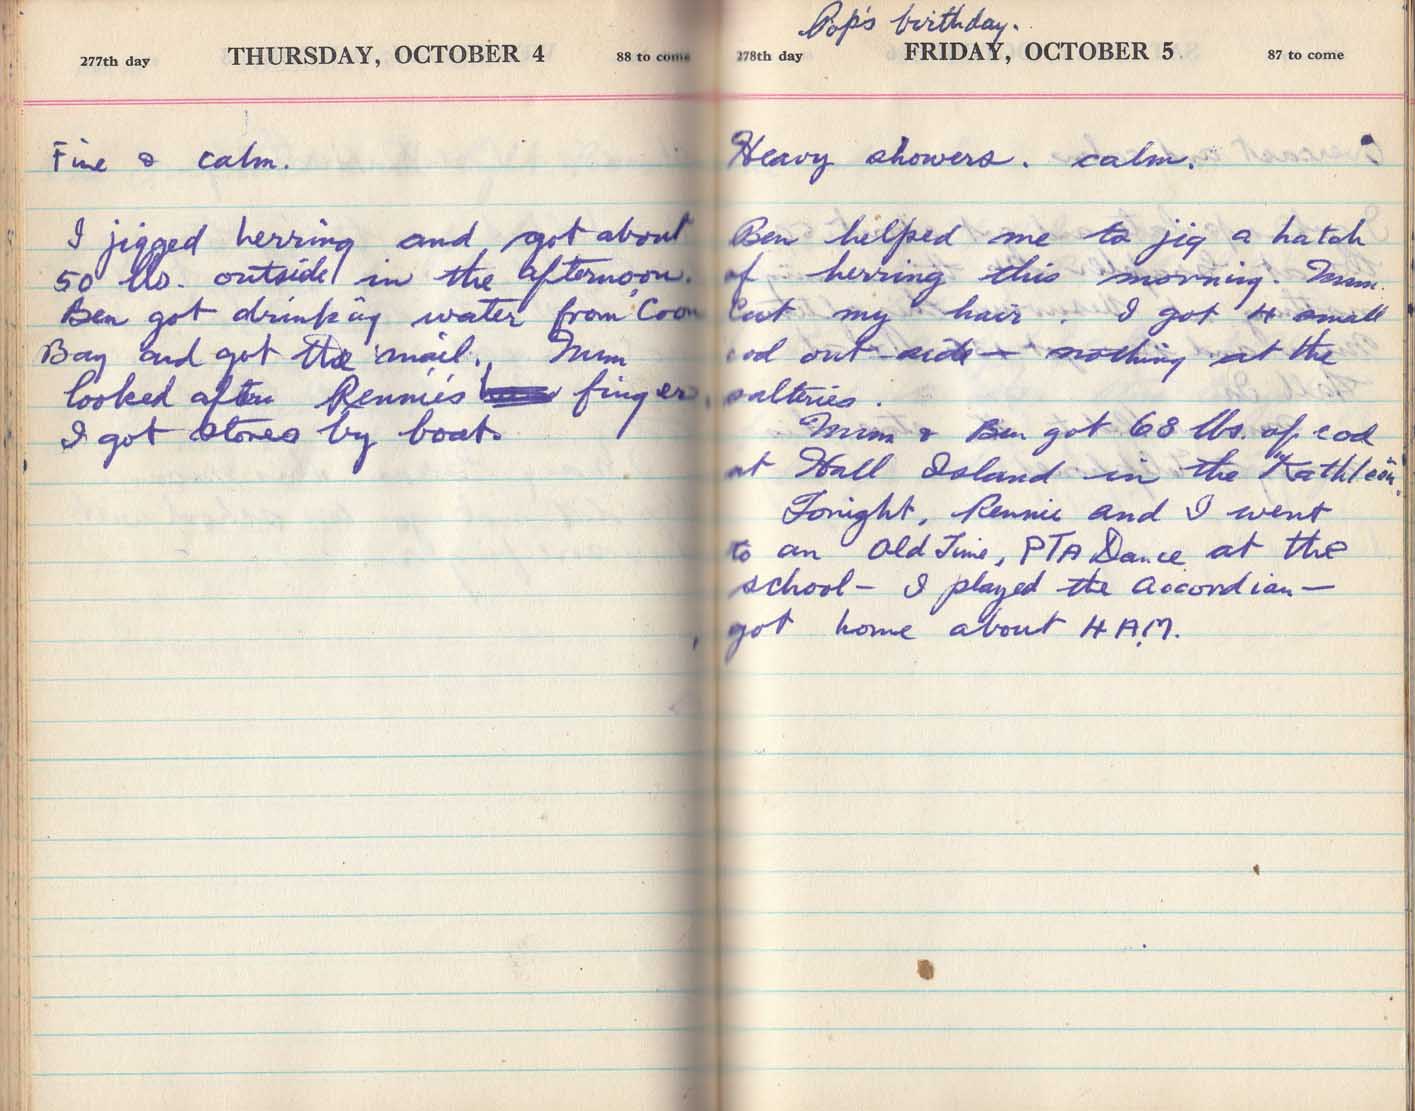 277th day THURSDAY, OCTOBER 4 88 to come
Fine & calm.
I jigged herring and got about
50 lbs. outside in the afternoon.
Ben got drinking water from Coon
Bay and got the mail. Mum
looked after Rennie's finger.
I got stores by boat.
Pop's birthday.
278th day FRIDAY, OCTOBER 5 87 to come
Heavy showers. calm.
Ben helped me to jig a hatch
of herring this morning. Mum
Cut my hair. I got 4 small
cod out-side - nothing at the
salteries.
Mum & Ben got 68 lbs. of cod
at Hall Island in the "Kathleen".
Tonight, Rennie and I went
to an Old Time, PTA Dance at the
school - I played the accordian -
got home about 4 A.M.